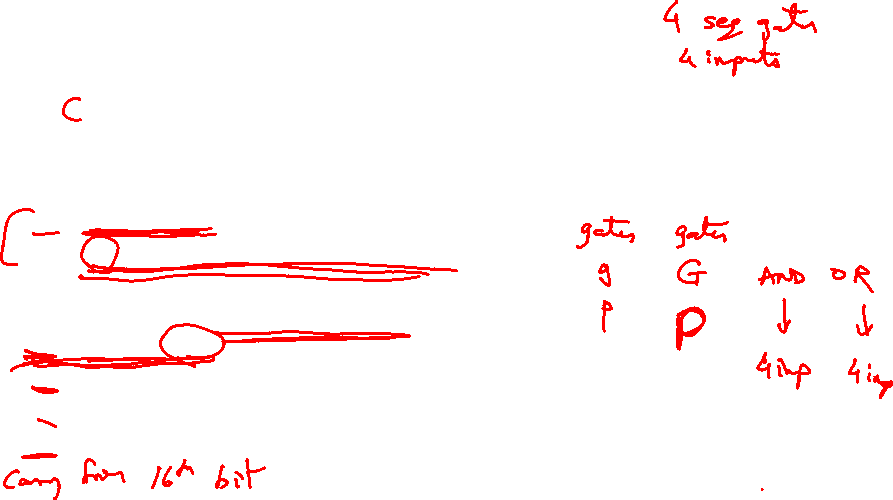 4 sep gates
4 inputs
C
gates gates
g G AND OR
p P
4 inp 4 inp
Carry from 16th bit